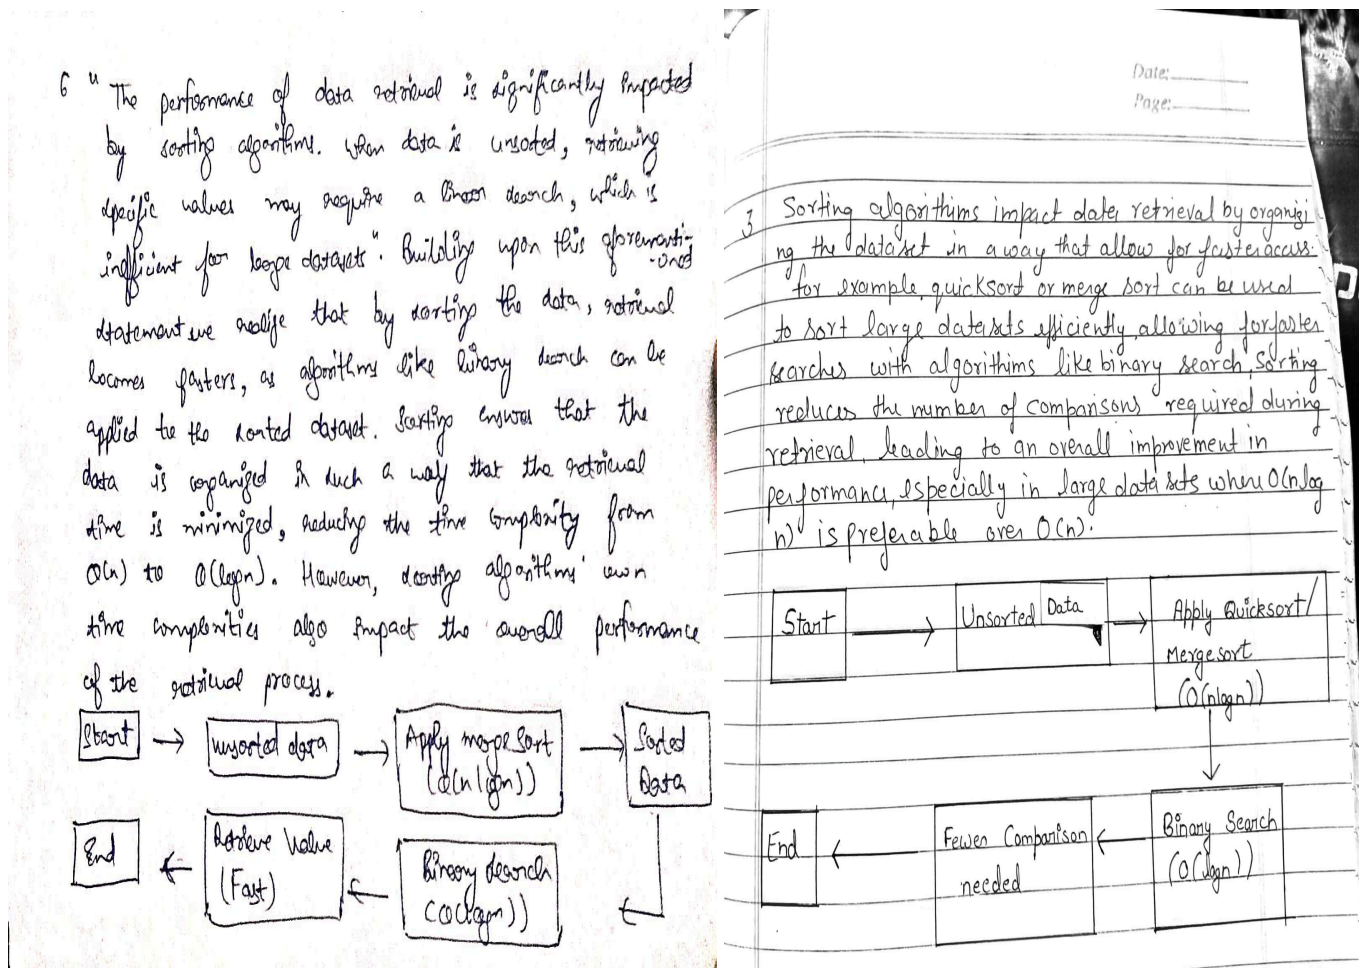 6 " The performance of data retrieval is significantly impacted
by sorting algorithms. When data is unsorted, retrieving
specific values may require a linear search, which is
inefficient for large datasets". Building upon this aforementi-
-oned
statement we realize that by sorting the data, retrieval
becomes fasters, as algorithms like binary search can be
applied to the sorted dataset. Sorting ensures that the
data is organized in such a way that the retrieval
time is minimized, reducing the time complexity from
O(n) to O(logn). However, sorting algorithms' own
time complexities also impact the overall performance
of the retrieval process.
Start
unsorted data
Apply merge Sort
(O(n lgn))
Sorted
Data
Binary search
(O(logn))
Retrieve Value
(Fast)
End
Date:
Page:
3 Sorting algorithims impact data retrieval by organizi
ng the dataset in a way that allow for faster access.
for example, quicksort or merge sort can be used
to sort large datasets efficiently, allowing for faster
searches with algorithims like binary search, Sorting
reduces the number of comparisons required during
retrieval, leading to an overall improvement in
performance, especially in large data sets where O(nlog
n) is preferable over O(n).
Start
Unsorted Data
Apply Quicksort/
Mergesort
(O(nlogn))
Binary Search
(O(logn))
Fewer Comparison
needed
End